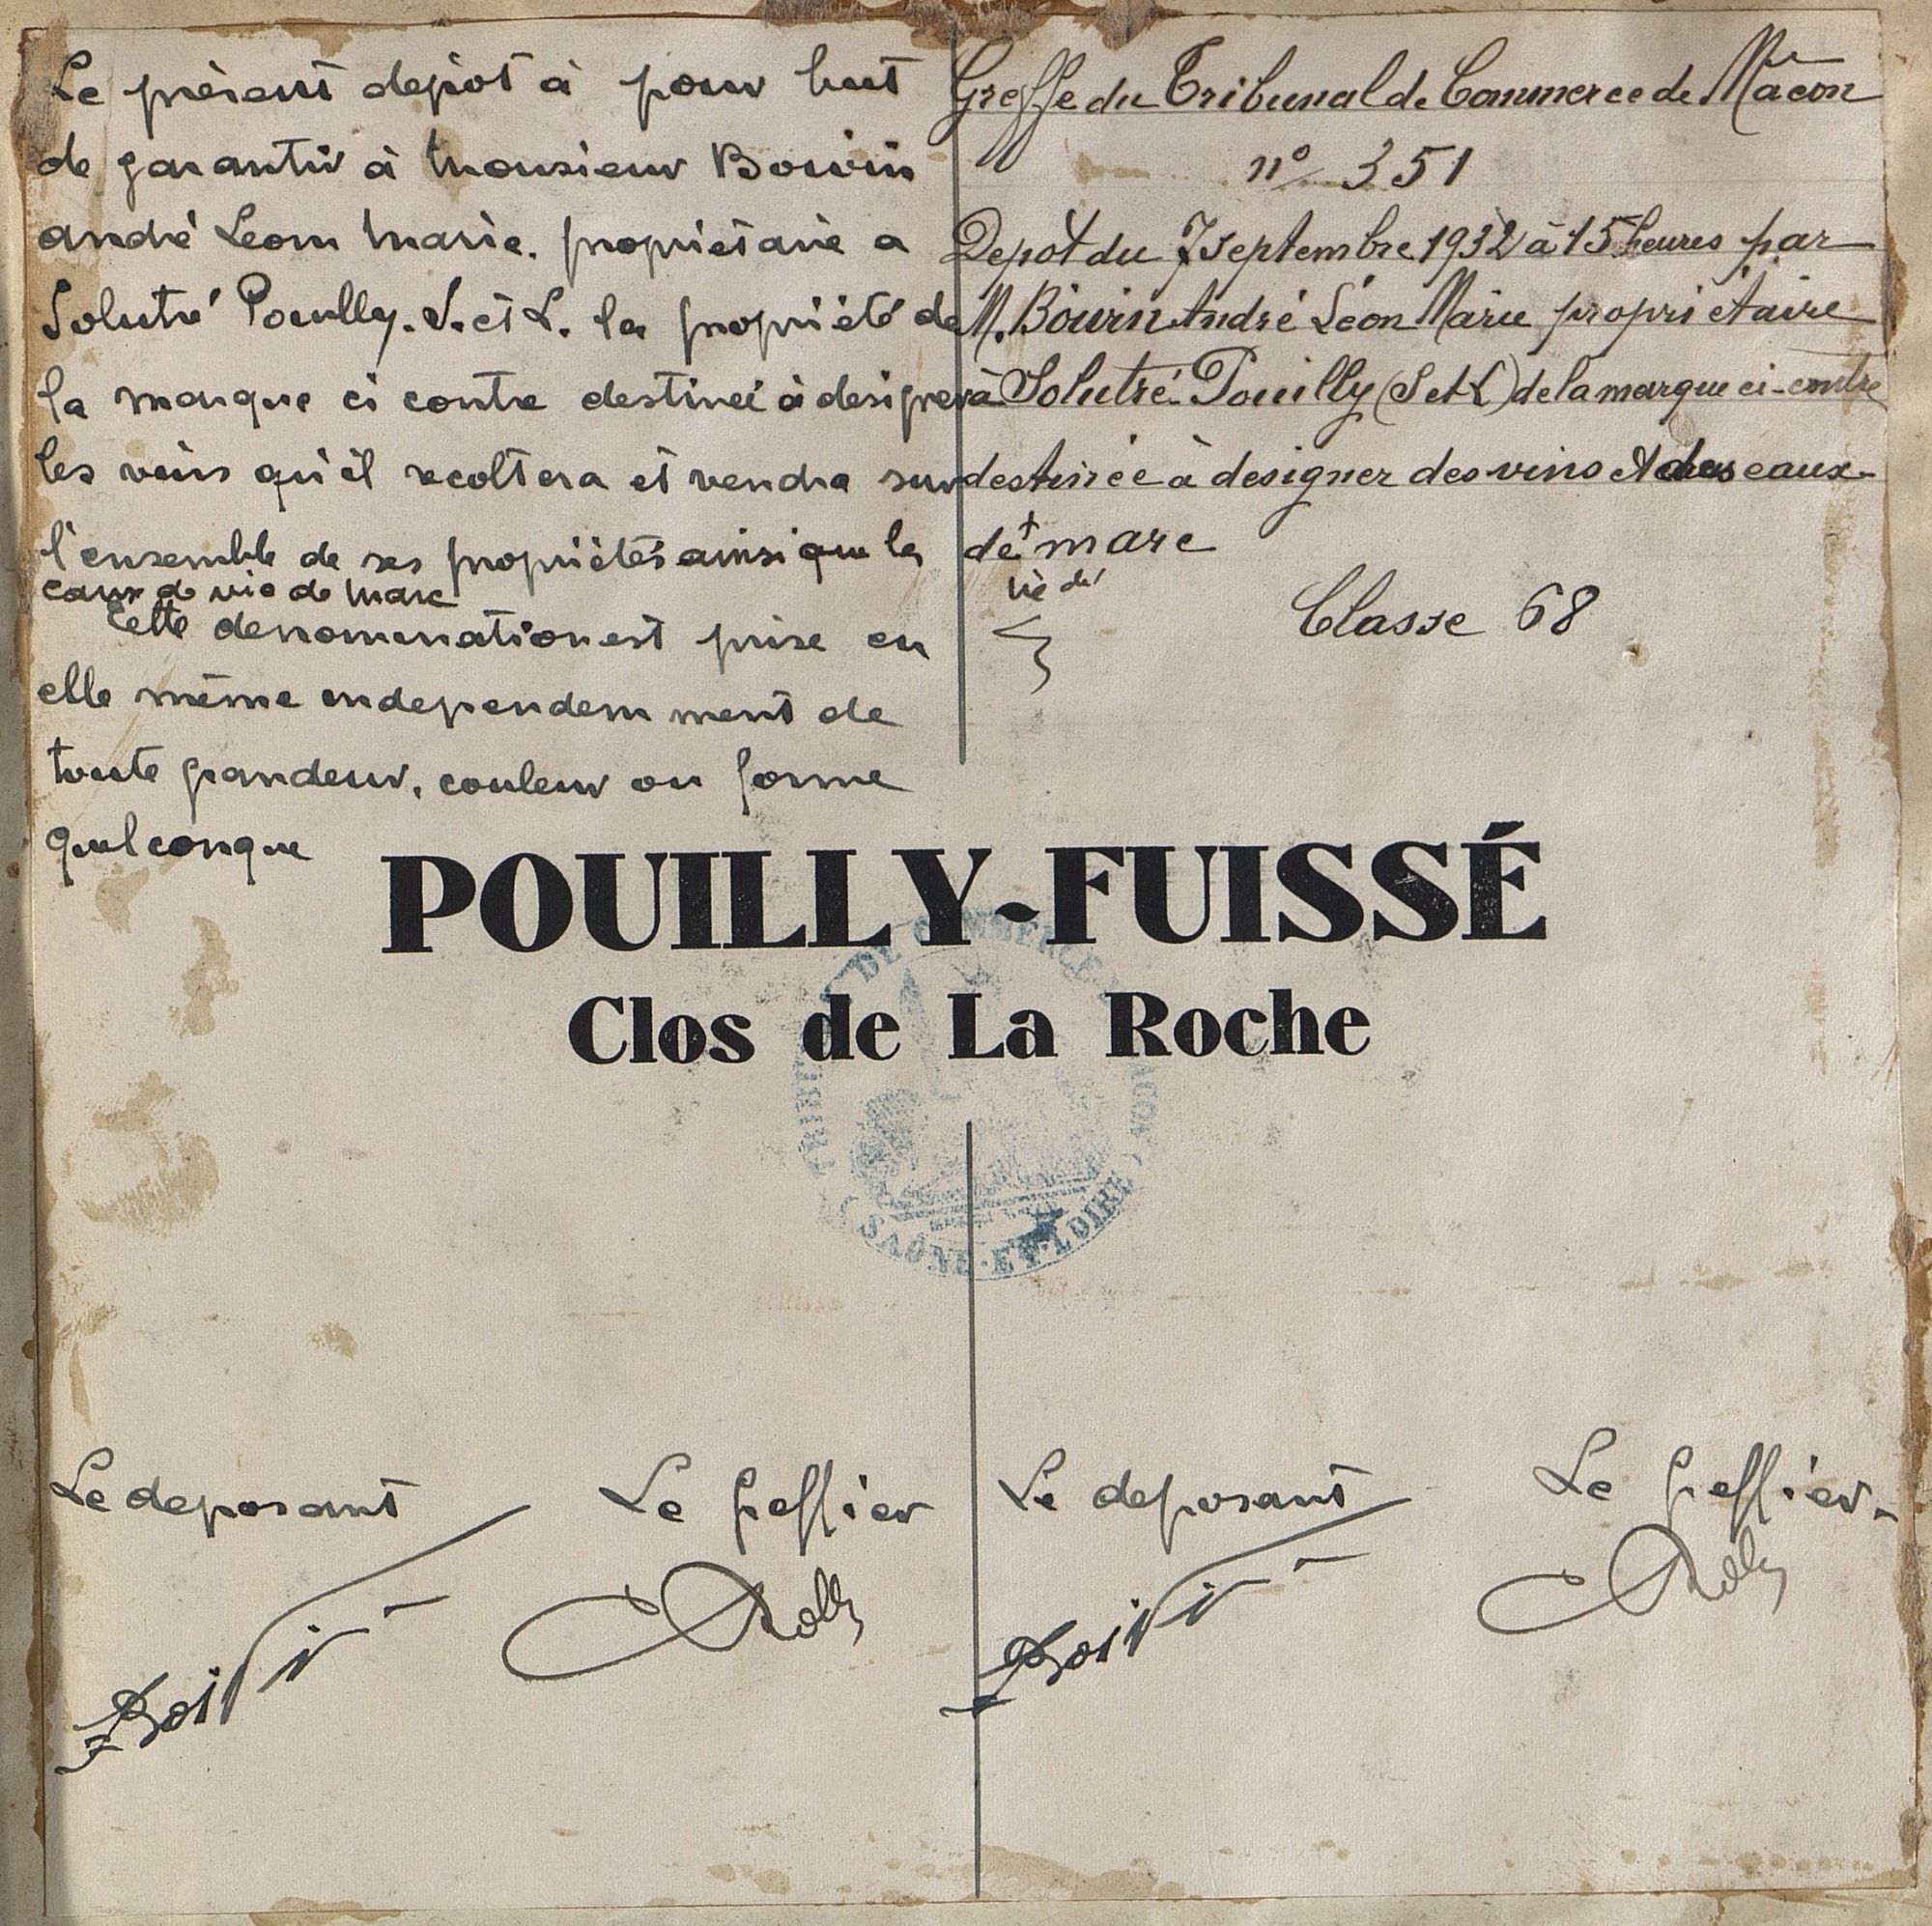 Le présent depot à pour but
de garantir à Monsieur Boivin
andré Leon Marie. propriétaire a
Solutré Pouilly. S. et L. la propriété de
la marque ci contre destineé à designer
les vins qu'il recoltera et vendra sur
l'ensemble de ses propriétés ainsi que les
eaux de vie de Marc
Cette denomination est prise en
elle même independemment de
toute grandeur, couleur ou forme
quelconque
Greffe du Tribunal de Commerce de Mâcon
n° 351
Depot du 7 septembre 1932 à 15 heures par
M. Boivin André Léon Marie propriétaire
à Solutré-Pouilly (S et L) de la marque ci-contre
destinée à designer des vins et des eaux
de + marc
vie de
Classe 68
POUILLY-FUISSÉ
Clos de La Roche
TRIBUNAL DE COMMERCE MACON
(SAÔNE-ET-LOIRE)
Le deposant Le Greffier
Boivin
Le deposant Le Greffier.
Boivin